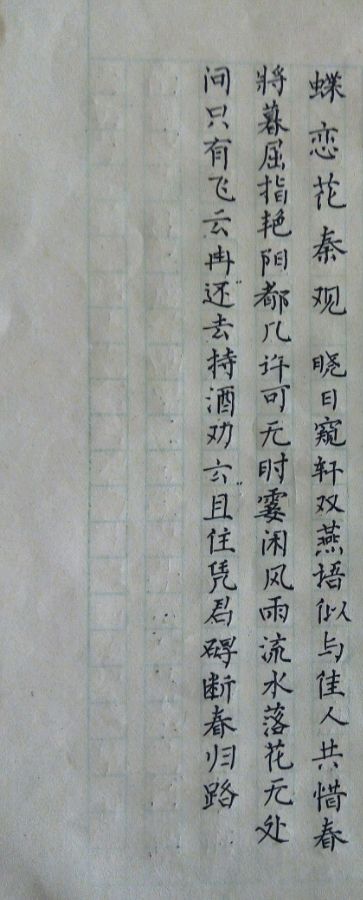 蝶恋花秦观 晓日窥轩双燕语似与佳人共惜春
將暮屈指艳阳都几许可无时霎闲风雨流水落花无处
问只有飞云冉〃还去持酒劝云〃且住凭君碍断春归路